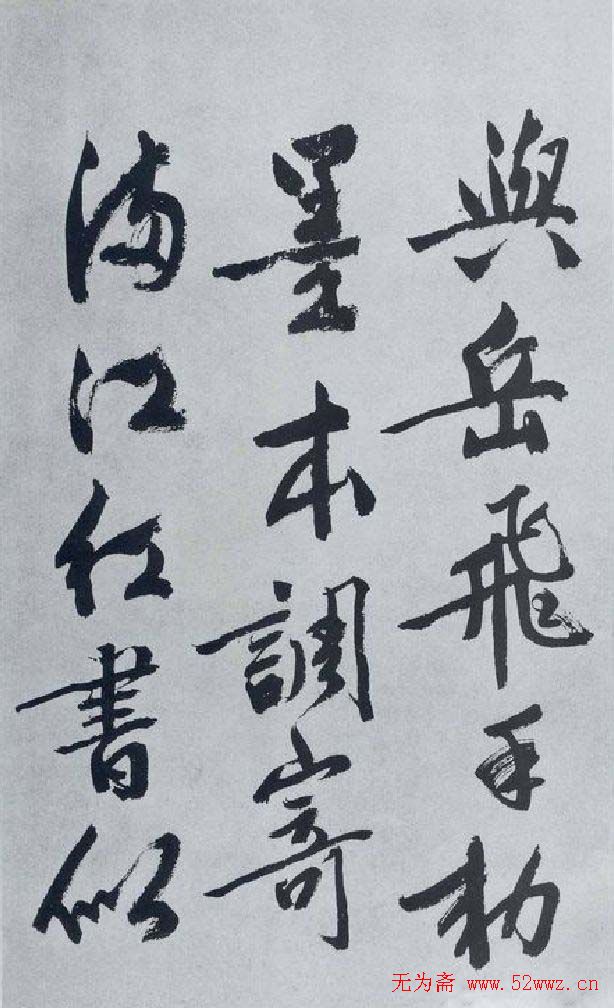 與岳飛手勑
墨本調寄
满江红書似
无为斋 www.52wwz.cn